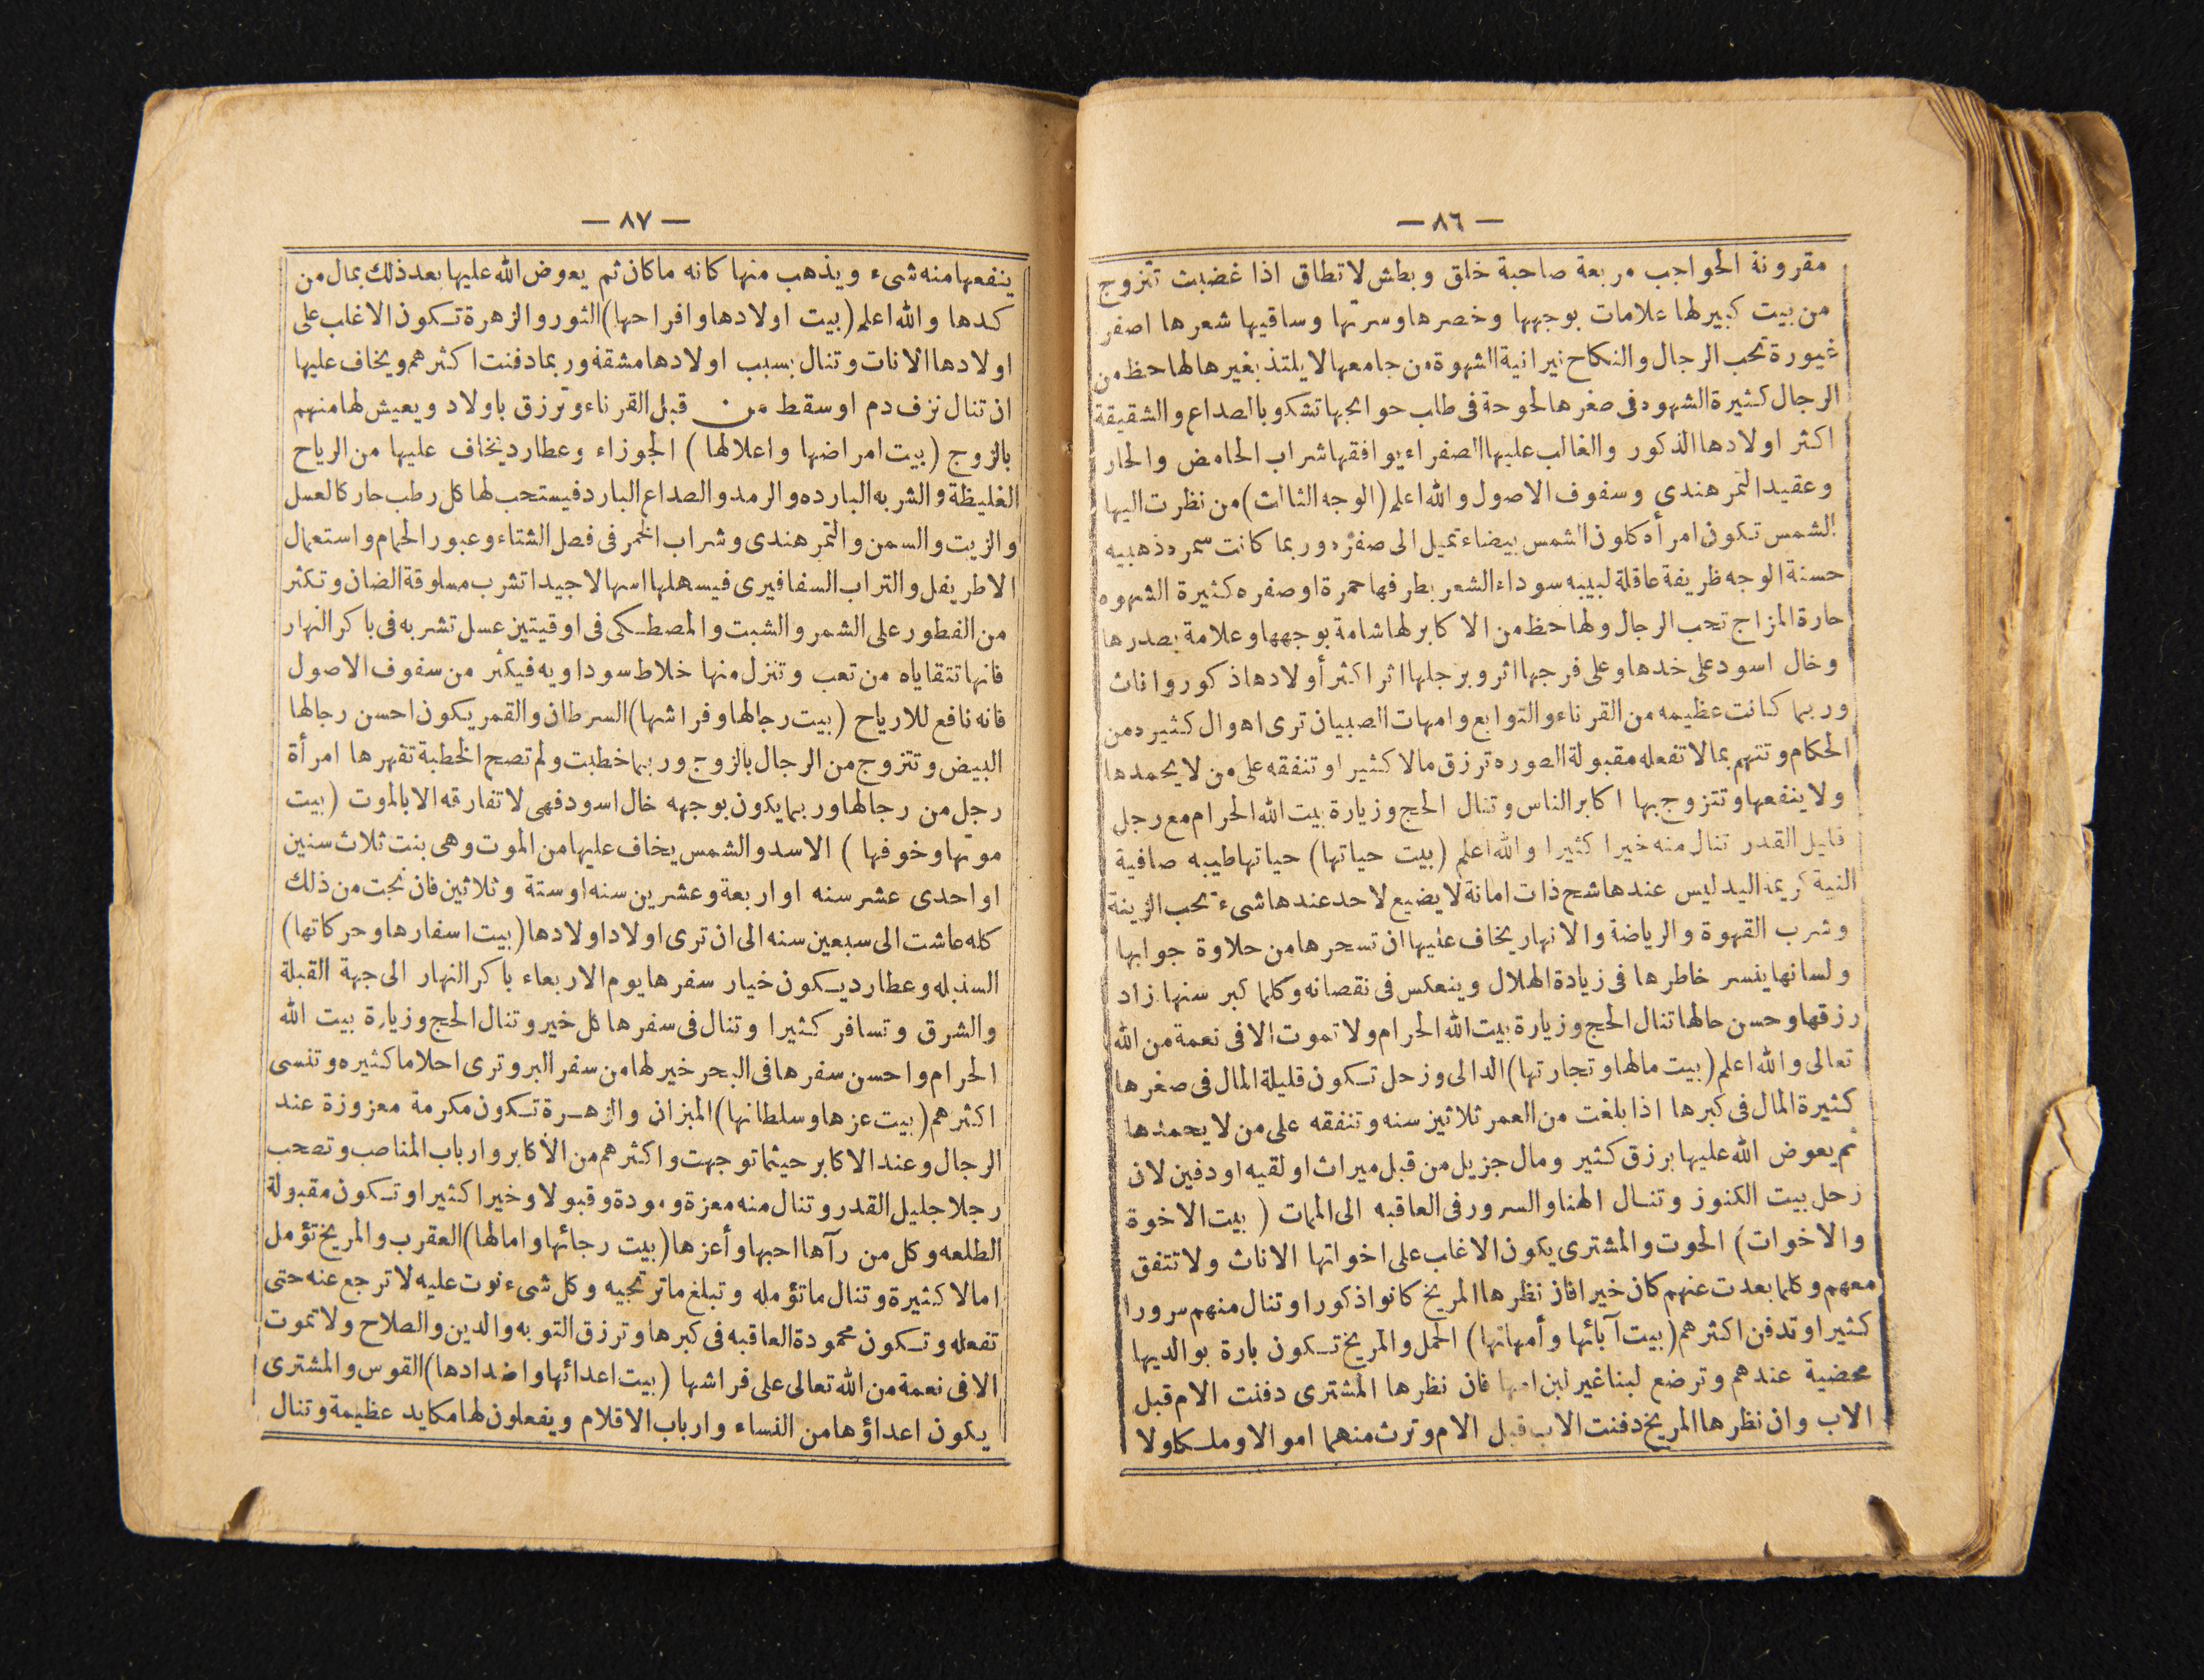 — ٨٦ —
مقرونة الحواجب مربعة صاحبة خلق وبطش لاتطاق اذا غضبت تتزوج
من بيت كبيرلها علامات بوجهها وخصرها وسرتها وساقيها شعرها اصفر
غيورة تحب الرجال والنكاح نيرانية الشهوة من جامعها لايلتذ بغيرها لها حظ من
الرجال كثيرة الشهوه فى صغرها لحوحة فى طلب حوائجها تشكو بالصداع والشقيقة
اكثر اولادها الذكور والغالب عليها الصفراء يوافقها شراب الحامض والحار
وعقيد التمرهندى وسفوف الاصول والله اعلم (الوجه الثالث) من نظرت اليها
الشمس تكون امرأه كلون الشمس بيضاء تميل الى صفره وربما كانت سمره ذهبيه
حسنة الوجه ظريفة عاقلة لبيبه سوداء الشعر بطرفها حمرة اوصفره كثيرة الشهوه
حارة المزاج تحب الرجال ولها حظ من الاكابر لها شامة بوجهها وعلامة بصدرها
وخال اسود على خدها وعلى فرجها اثر وبرجلها اثر اكثر أولادها ذكور واناث
وربما كانت عظيمه من القرناء والتوابع وامهات الصبيان ترى اهوال كثيره من
الحكام وتتهم بمالاتفعله مقبولة الصوره ترزق مالا كثيرا وتنفقه على من لا يحمدها
ولاينفعها وتتزوج بها اكابر الناس وتنال الحج وزيارة بيت الله الحرام مع رجل
قليل القدر تنال منه خيرا كثيرا والله اعلم (بيت حياتها) حياتها طيبه صافية
النية كريمة اليد ليس عندها شح ذات امانة لايضيع لاحد عندها شىء تحب الزينة
وشرب القهوة والرياضة والانهار يخاف عليها ان تسحر هامن حلاوة جوابها
ولسانها ينسر خاطرها فى زيادة الهلال وينعكس فى نقصانه وكلما كبر سنها زاد
رزقها وحسن حالها تنال الحج وزيارة بيت الله الحرام ولا تموت الافى نعمة من الله
تعالى والله اعلم (بيت مالها وتجارتها) الدالى وزحل تكون قليلة المال فى صغرها
كثيرة المال فى كبرها اذا بلغت من العمر ثلاثين سنه وتنفقه على من لايحمدها
ثم يعوض الله عليها برزق كثير ومال جزيل من قبل ميراث او لقيه اودفين لان
زحل بيت الكنوز وتنال الهنا والسرور فى العاقبه الى الممات (بيت الاخوة
والاخوات) الحوت والمشترى يكون الاغلب على اخواتها الاناث ولا تتفق
معهم وكلما بعدت عنهم كان خيرا فان نظرها المريخ كانوا ذكورا وتنال منهم سرورا
كثيرا وتدفن اكثرهم (بيت آبائها وأمهاتها) الحمل والمريخ تكون بارة بوالديها
محضية عندهم وترضع لبنا غير لبن امها فان نظرها المشترى دفنت الام قبل
الاب وان نظرها المريخ دفنت الاب قبل الام وترث منهما اموالا وملكا ولا
— ٨٧ —
ينفعها منه شىء ويذهب منها كانه ماكان ثم يعوض الله عليها بعد ذلك بمال من
كدها والله اعلم (بيت اولادها وافراحها) الثور والزهرة تكون الاغلب على
اولادها الاناث وتنال بسبب اولادها مشقة وربما دفنت اكثرهم ويخاف عليها
ان تنال نزف دم اوسقط من قبل القرناء وترزق باولاد ويعيش لها منهم
بالزوج (بيت امراضها واعلالها) الجوزاء وعطارد يخاف عليها من الرياح
الغليظة والشربه البارده والرمد والصداع البارد فيستحب لها كل رطب حار كالعسل
والزيت والسمن والتمرهندى وشراب الخمر فى فصل الشتاء وعبور الحمام واستعمال
الاطريفل والتراب السفافيرى فيسهلها اسهالا جيدا تشرب مسلوقة الضان وتكثر
من الفطور على الشمر والشبت والمصطكى فى اوقيتين عسل تشربه فى باكر النهار
فانها تتقاياه من تعب وتنزل منها خلاط سوداويه فيكثر من سفوف الاصول
فانه نافع للارياح (بيت رجالها وفراشها) السرطان والقمر يكون احسن رجالها
البيض وتتزوج من الرجال بالزوج وربما خطبت ولم تصح الخطبة تقهرها امرأة
رجل من رجالها وربما يكون بوجهه خال اسود فهى لاتفارقه الا بالموت (بيت
موتها وخوفها) الاسد والشمس يخاف عليها من الموت وهى بنت ثلاث سنين
او احدى عشر سنه او اربعة وعشرين سنه اوستة وثلاثين فان نجت من ذلك
كله عاشت الى سبعين سنه الى ان ترى اولاد اولادها (بيت اسفارها وحركاتها)
السنبله وعطارد يكون خيار سفرها يوم الاربعاء باكر النهار الى جهة القبلة
والشرق وتسافر كثيرا وتنال فى سفرها كل خير وتنال الحج وزيارة بيت الله
الحرام واحسن سفرها فى البحر خير لها من سفر البر وترى احلاما كثيره وتنسى
اكثرهم (بيت عزها وسلطانها) الميزان والزهرة تكون مكرمة معزوزة عند
الرجال وعند الاكابر حيثما توجهت واكثرهم من الأكابر وارباب المناصب وتصحب
رجلا جليل القدر وتنال منه معزة ومودة وقبولا وخيرا كثيرا وتكون مقبولة
الطلعه وكل من رآها احبها وأعزها (بيت رجائها وامالها) العقرب والمريخ تؤمل
امالا كثيرة وتنال ماتؤمله وتبلغ ماترتجيه وكل شىء نوت عليه لاترجع عنه حتى
تفعله وتكون محمودة العاقبه فى كبرها وترزق التوبه والدين والصلاح ولا تموت
الافى نعمة من الله تعالى على فراشها (بيت اعدائها واضدادها) القوس والمشترى
يكون اعداؤها من النساء وارباب الاقلام ويفعلون لها مكايد عظيمة وتنال